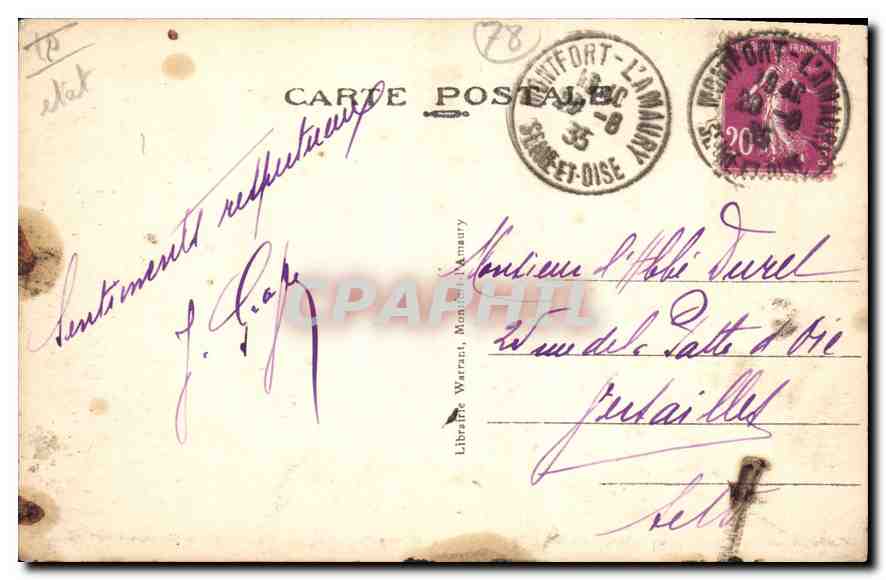 TP
etat
78
CARTE POSTALE
MONTFORT-L'AMAURY
35
SEINE-ET-OISE
MONTFORT-L'AMAURY
20
Sentiments respectueux
Librairie Warrant, Montfort-l'Amaury
Monsieur l'Abbé Durel
25 rue de la Patte d'Oie
Versailles
S et O
CPAPHIL